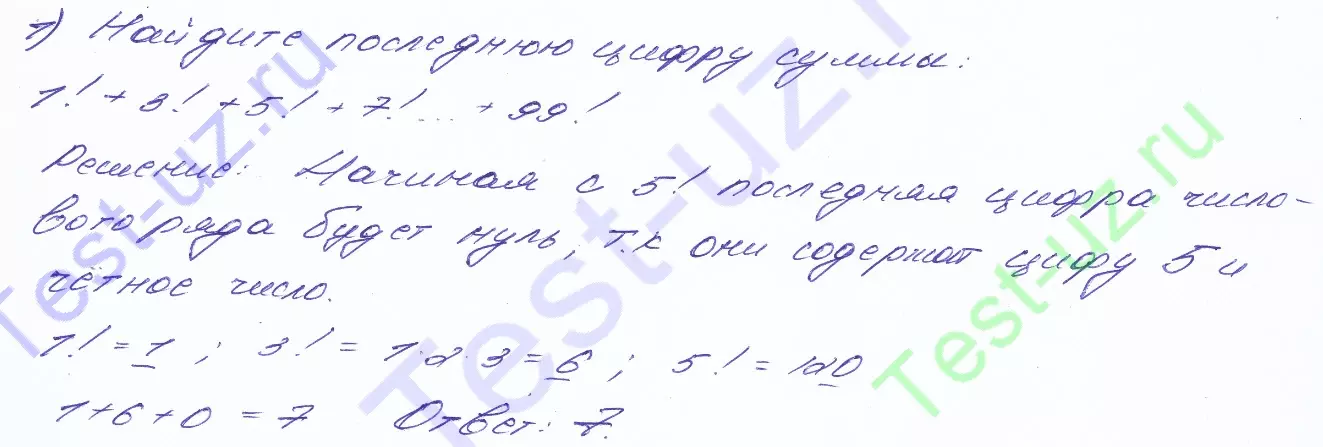 1) Найдите последнюю цифру суммы:
1! + 3! + 5! + 7! ... + 99!
Решение: Начиная с 5! последняя цифра число-
вого ряда будет нуль, т.к они содержат цифу 5 и
чётное число.
1! = 1 ; 3! = 1·2·3 = 6 ; 5! = 120
1+6+0 = 7 Ответ: 7.
Test-uz.ru
Test-uz.ru
Test-uz.ru